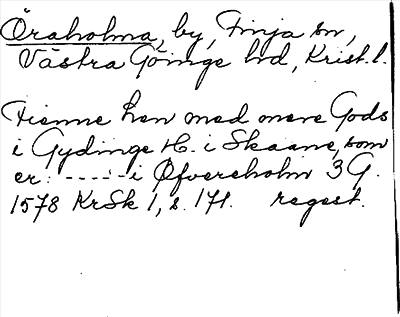 Öraholma, by, Finja sn,
Västra Göinge hd, Krist. l.
Fienne hen med mere Gods
i Gydinge H. i Skaane, som
er: ----- i Øfvereholm 3 G.
1578 KrSk 1, s. 171. regest.